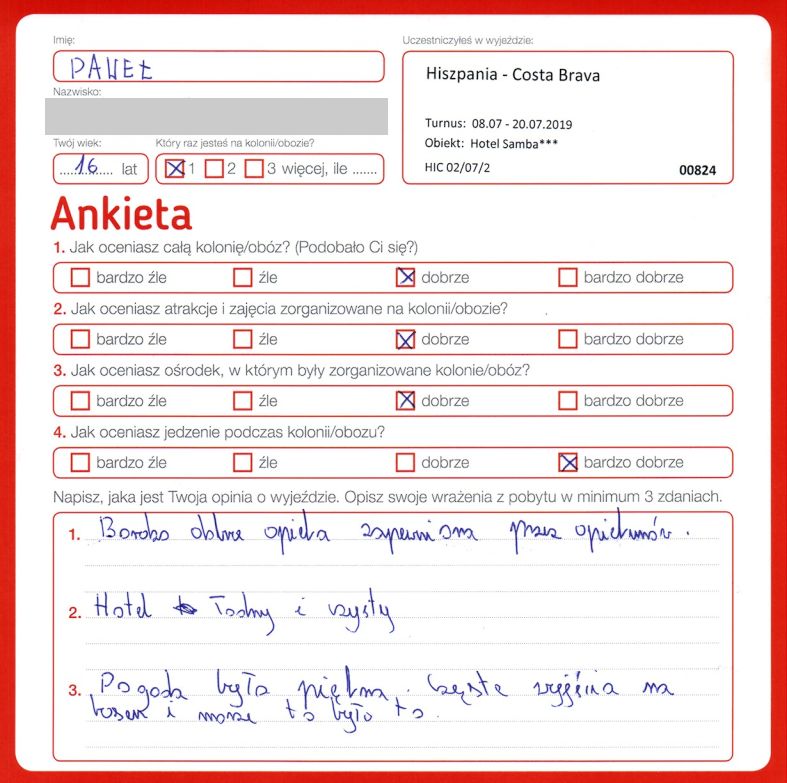 Imię:
PAWEŁ
Uczestniczyłeś w wyjeździe:
Hiszpania - Costa Brava
Nazwisko:
Turnus: 08.07 - 20.07.2019
Obiekt: Hotel Samba***
HIC 02/07/2
00824
Twój wiek:
Który raz jesteś na kolonii/obozie?
16 lat
1 2 3 więcej, ile .......
Ankieta
1. Jak oceniasz całą kolonię/obóz? (Podobało Ci się?)
bardzo źle źle dobrze bardzo dobrze
2. Jak oceniasz atrakcje i zajęcia zorganizowane na kolonii/obozie?
bardzo źle źle dobrze bardzo dobrze
3. Jak oceniasz ośrodek, w którym były zorganizowane kolonie/obóz?
bardzo źle źle dobrze bardzo dobrze
4. Jak oceniasz jedzenie podczas kolonii/obozu?
bardzo źle źle dobrze bardzo dobrze
Napisz, jaka jest Twoja opinia o wyjeździe. Opisz swoje wrażenia z pobytu w minimum 3 zdaniach.
1. Bardzo dobra opieka zapewniona przez opiekunów.
2. Hotel ładny i czysty
3. Pogoda była piękna. Częste wyjścia na
basen i morze to było to.